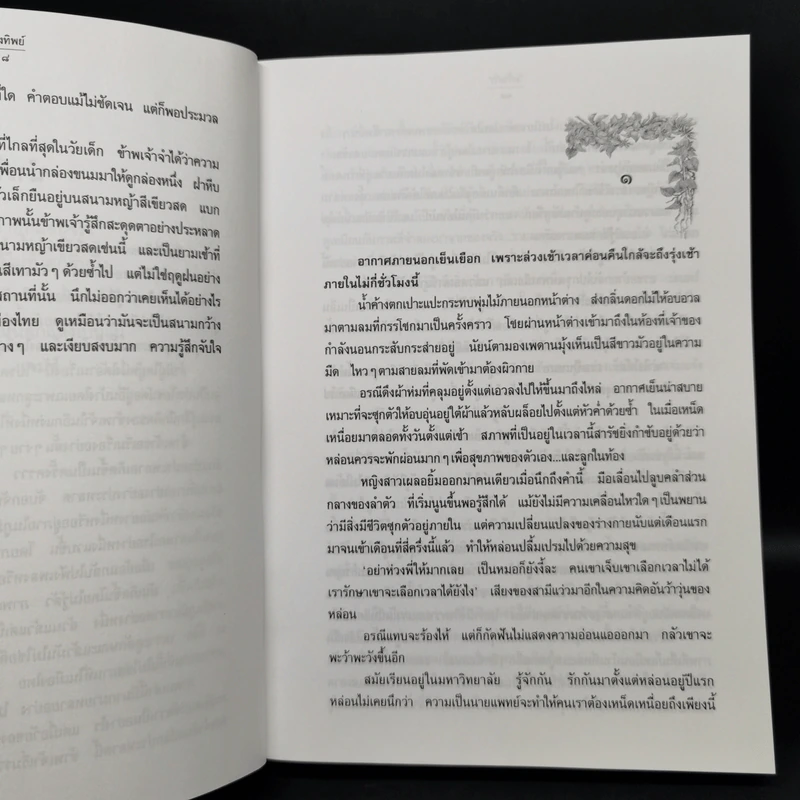 งทิพย์
๘
ี่ใด คำตอบแม้ไม่ชัดเจน แต่ก็พอประมวล
ที่ไกลที่สุดในวัยเด็ก ข้าพเจ้าจำได้ว่าความ
พื่อนนำกล่องขนมมาให้ดูกล่องหนึ่ง ฝาหีบ
ัวเล็กยืนอยู่บนสนามหญ้าสีเขียวสด แบก
ภาพนั้นข้าพเจ้ารู้สึกสะดุดตาอย่างประหลาด
นามหญ้าเขียวสดเช่นนี้ และเป็นยามเช้าที่
นสีเทามัวๆ ด้วยซ้ำไป แต่ไม่ใช่ฤดูฝนอย่าง
ถานที่นั้น นึกไม่ออกว่าเคยเห็นได้อย่างไร
มืองไทย ดูเหมือนว่ามันจะเป็นสนามกว้าง
างๆ และเงียบสงบมาก ความรู้สึกจับใจ
๑
อากาศภายนอกเย็นเยือก เพราะล่วงเข้าเวลาค่อนคืนใกล้จะถึงรุ่งเช้า
ภายในไม่กี่ชั่วโมงนี้
น้ำค้างตกเปาะแปะกระทบพุ่มไม้ภายนอกหน้าต่าง ส่งกลิ่นดอกไม้ให้อบอวล
มาตามลมที่กรรโชกมาเป็นครั้งคราว โชยผ่านหน้าต่างเข้ามาถึงในห้องที่เจ้าของ
กำลังนอนกระสับกระส่ายอยู่ นัยน์ตามองเพดานมุ้งเห็นเป็นสีขาวมัวอยู่ในความ
มืด ไหวๆ ตามสายลมที่พัดเข้ามาต้องผิวกาย
อรณีดึงผ้าห่มที่คลุมอยู่ตั้งแต่เอวลงไปให้ขึ้นมาถึงไหล่ อากาศเย็นน่าสบาย
เหมาะที่จะซุกตัวให้อบอุ่นอยู่ใต้ผ้าแล้วหลับผล็อยไปตั้งแต่หัวค่ำด้วยซ้ำ ในเมื่อเหน็ด
เหนื่อยมาตลอดทั้งวันตั้งแต่เช้า สภาพที่เป็นอยู่ในเวลานี้สารัชยิ่งกำชับอยู่ด้วยว่า
หล่อนควรจะพักผ่อนมากๆ เพื่อสุขภาพของตัวเอง...และลูกในท้อง
หญิงสาวเผลอยิ้มออกมาคนเดียวเมื่อนึกถึงคำนี้ มือเลื่อนไปลูบคลำส่วน
กลางของลำตัว ที่เริ่มนูนขึ้นพอรู้สึกได้ แม้ยังไม่มีความเคลื่อนไหวใดๆ เป็นพยาน
ว่ามีสิ่งมีชีวิตซุกตัวอยู่ภายใน แต่ความเปลี่ยนแปลงของร่างกายนับแต่เดือนแรก
มาจนเข้าเดือนที่สี่ครึ่งนี้แล้ว ทำให้หล่อนปลื้มเปรมไปด้วยความสุข
'อย่าห่วงพี่ให้มากเลย เป็นหมอก็ยังงี้ละ คนเขาเจ็บเขาเลือกเวลาไม่ได้
เรารักษาเขาจะเลือกเวลาได้ยังไง' เสียงของสามีแว่วมาอีกในความคิดอันว้าวุ่นของ
หล่อน
อรณีแทบจะร้องไห้ แต่ก็กัดฟันไม่แสดงความอ่อนแอออกมา กลัวเขาจะ
พะว้าพะวังขึ้นอีก
สมัยเรียนอยู่ในมหาวิทยาลัย รู้จักกัน รักกันมาตั้งแต่หล่อนอยู่ปีแรก
หล่อนไม่เคยนึกว่า ความเป็นนายแพทย์จะทำให้คนเราต้องเหน็ดเหนื่อยถึงเพียงนี้